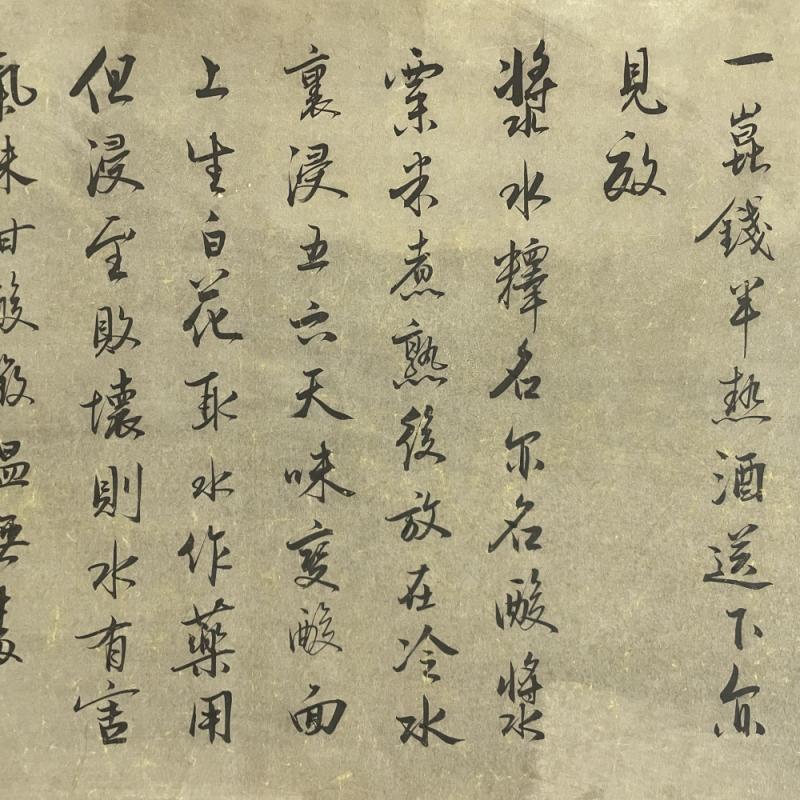 一崑錢半热酒送下亦
見效
漿水釋名亦名酸漿
粟米煮熟後放在冷水
裏浸五六天味變酸面
上生白花取水作藥用
但浸至敗壞則水有害
氣味甘酸微溫無毒